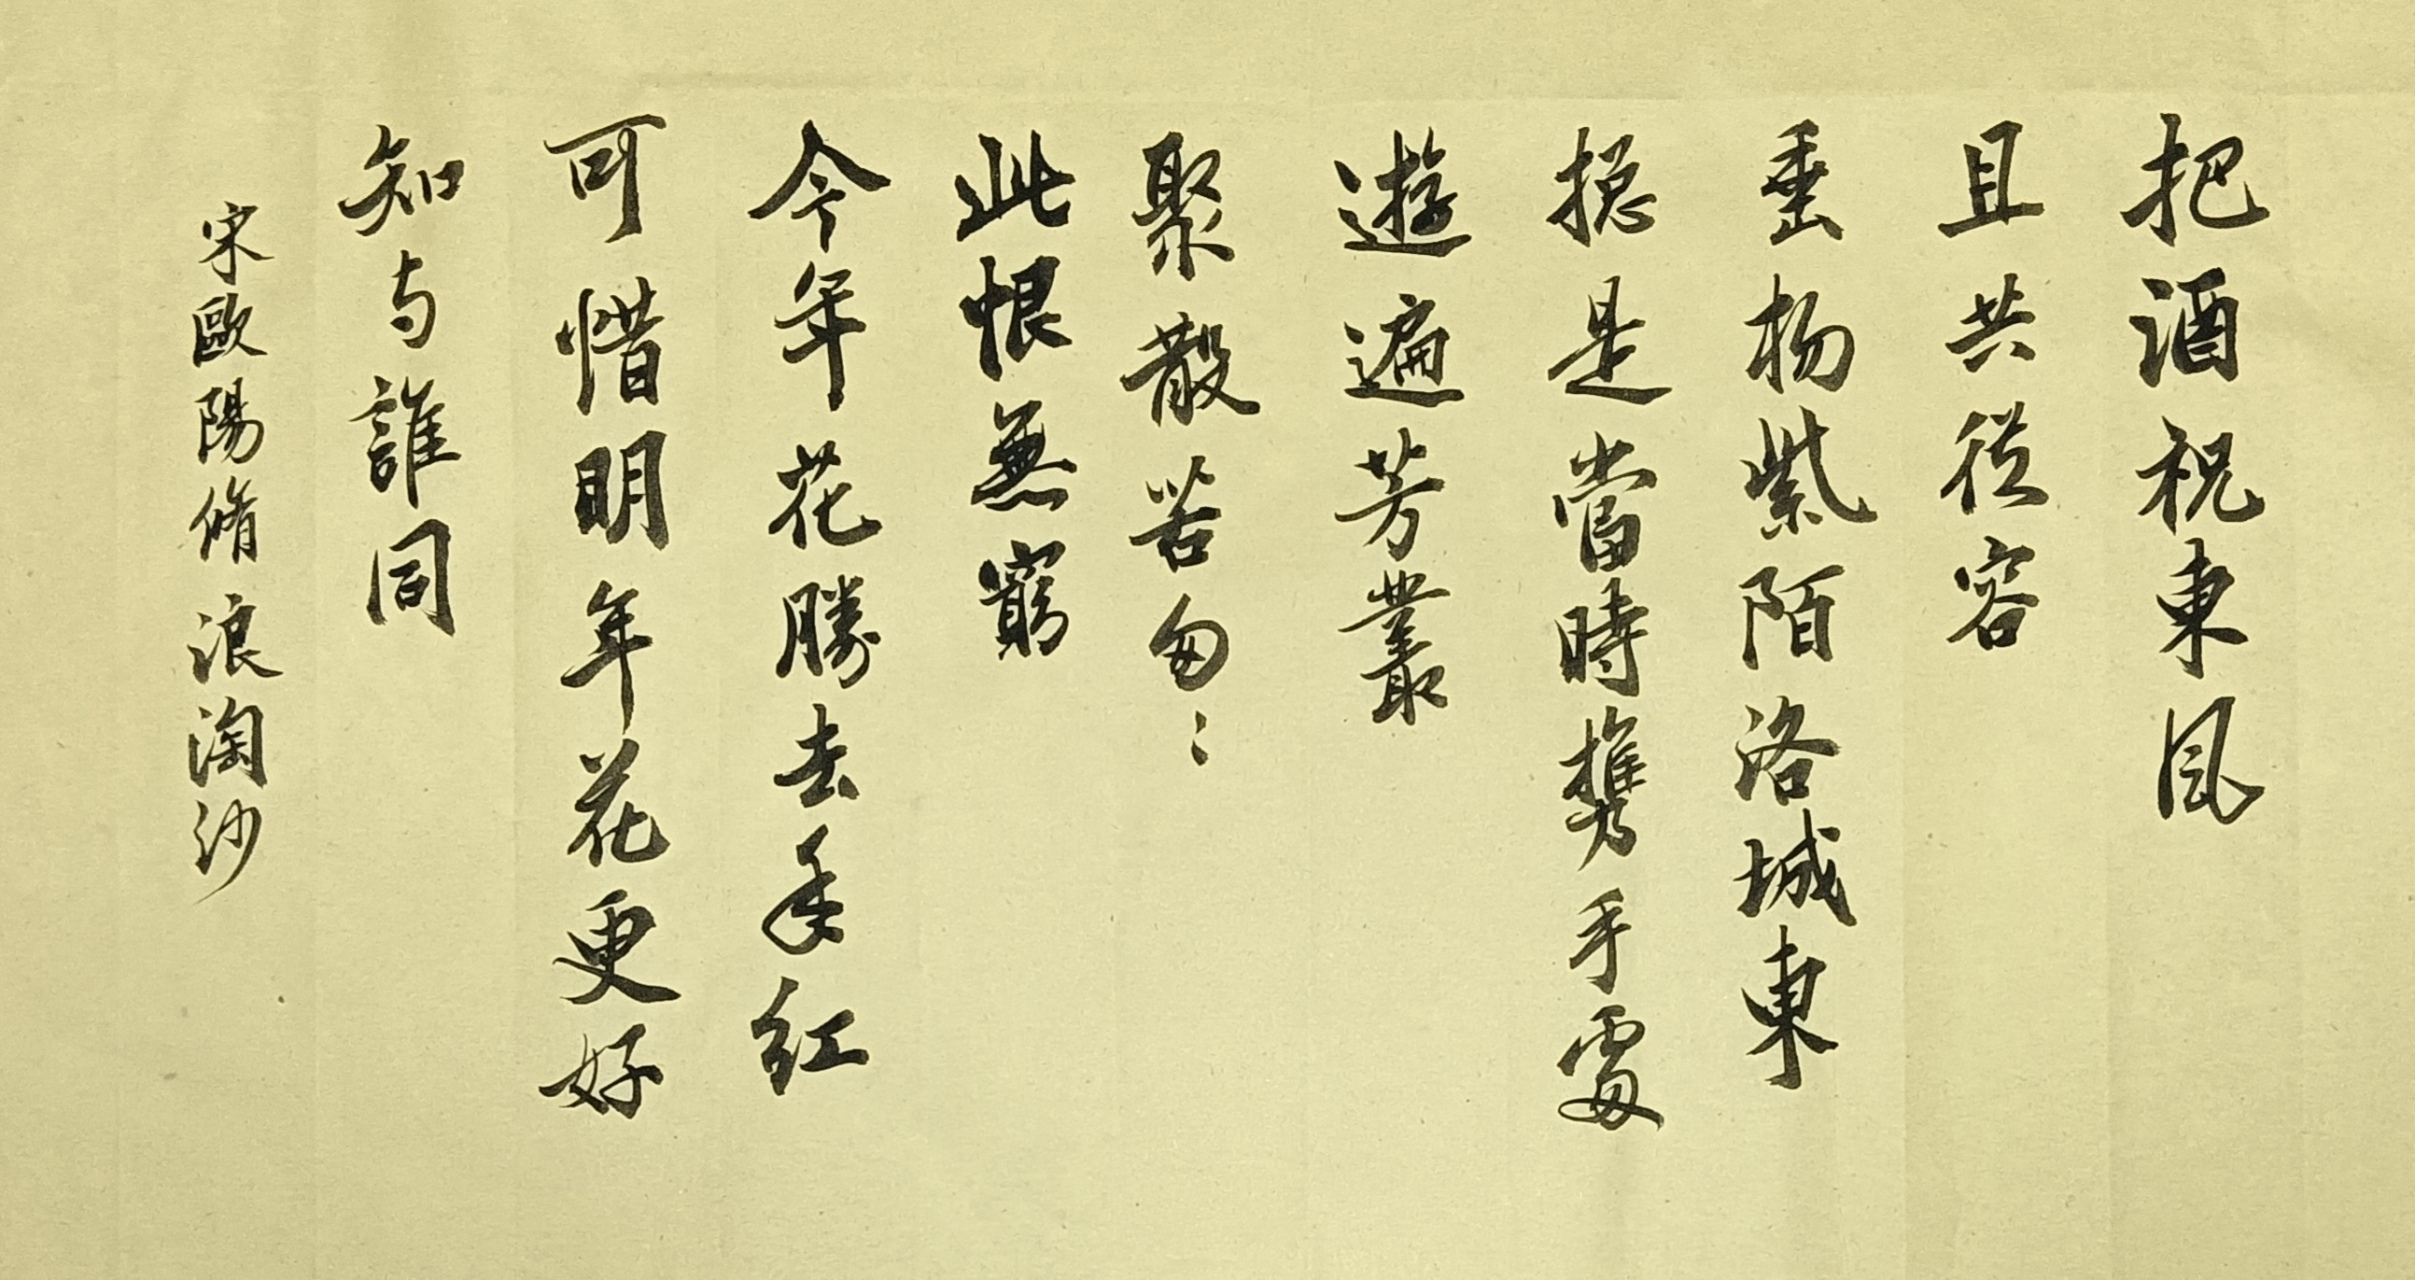 把酒祝東風
且共從容
垂楊紫陌洛城東
摠是當時攜手處
遊遍芳叢
聚散苦匆〻
此恨無窮
今年花勝去年紅
可惜明年花更好
知与誰同
宋歐陽脩浪淘沙